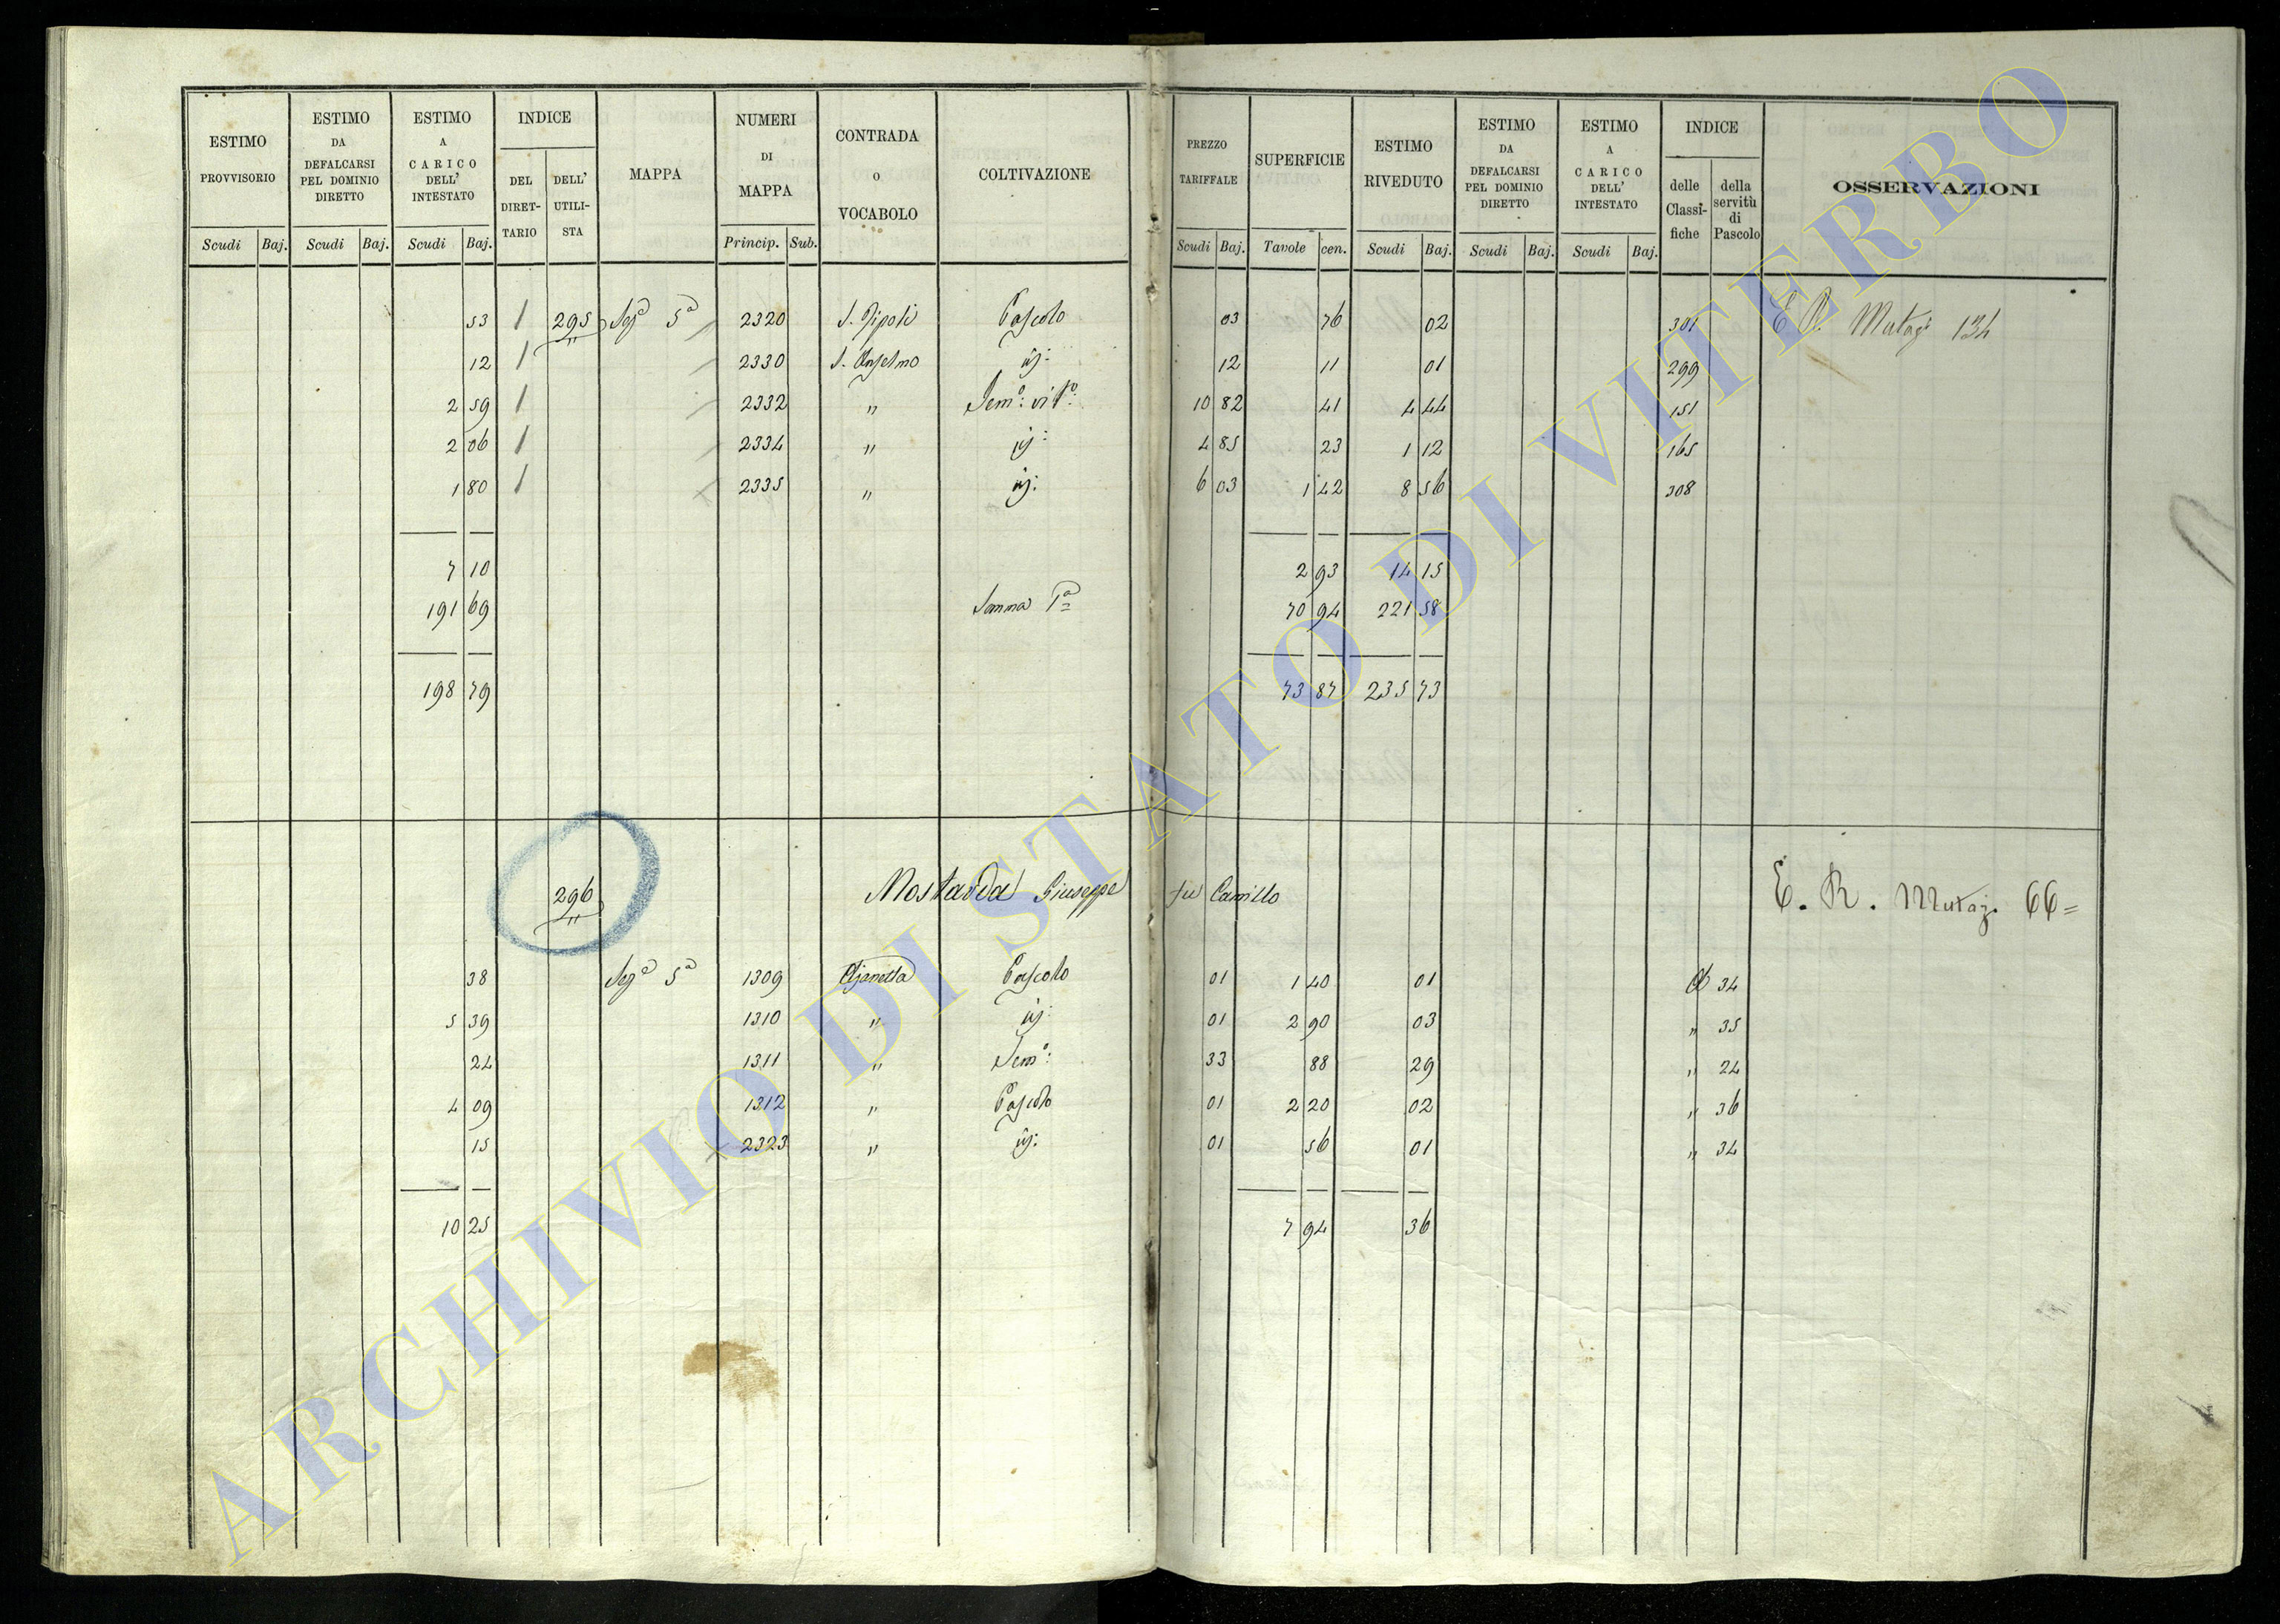 ESTIMO PROVVISORIO | ESTIMO DA DEFALCARSI PEL DOMINIO DIRETTO | ESTIMO A CARICO DELL' INTESTATO | INDICE DEL DIRET-TARIO | DELL' UTILI-STA | MAPPA | NUMERI DI MAPPA | CONTRADA O VOCABOLO | COLTIVAZIONE | PREZZO TARIFFALE | SUPERFICIE | ESTIMO RIVEDUTO | ESTIMO DA DEFALCARSI PEL DOMINIO DIRETTO | ESTIMO A CARICO DELL' INTESTATO | INDICE delle Classi-fiche | della servitù di Pascolo | OSSERVAZIONI
Scudi Baj. Scudi Baj. Scudi Baj. Princip. Sub. Scudi Baj. Tavole cen. Scudi Baj. Scudi Baj. Scudi Baj.
53 1 295 Sezª 5ª 2320 S. Ripoli Pascolo 03 76 02 301 E R. Mutaz 134
12 1 2330 S. Anselmo id: 12 11 01 299
2 59 1 2332 " Semº: vitº: 10 82 41 4 44 151
2 06 1 2334 " id: 4 85 23 1 12 165
1 80 1 2335 " id: 6 03 1 42 8 56 308
7 10 2 93 14 15
191 69 Somma Pª 70 94 221 58
198 79 73 87 235 73
296 Mostarda Giuseppe fu Camillo E. R. Mutaz. 66=
38 Sezª 5ª 1309 Pascolo 01 1 40 01 34
5 39 1310 " id: 01 2 90 03 " 35
24 1311 " Semº: 33 88 29 " 24
4 09 1312 " Pascolo 01 2 20 02 " 36
15 2323 " id: 01 56 01 " 34
10 25 7 94 36
ARCHIVIO DI STATO DI VITERBO